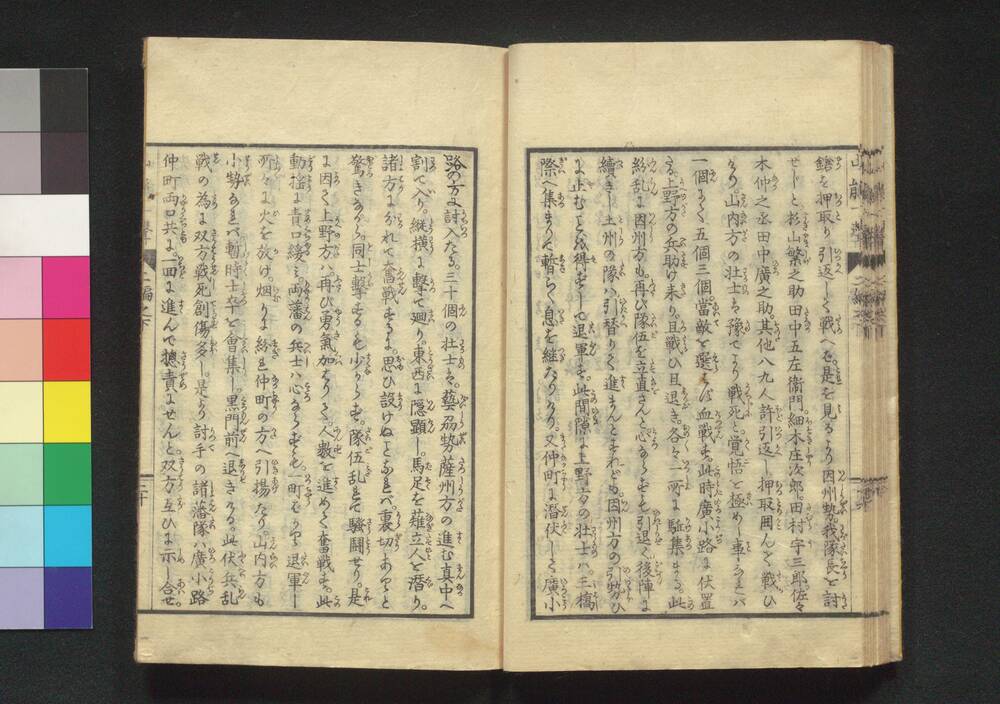 鎗を押取り引返して戦へば是を見るより因州勢我隊長を討
せじと杉山繁之助田中五左衛門細木庄次郎田村宇三郎佐々
木仲之丞田中廣之助其他八九人許引返し押取囲んで戦ひ
ける山内方の壮士は豫てより戦死と覚悟を極め事なれバ
一個もなく五個三個當敵を選まず血戦す此時廣小路に伏置
たる上野方の兵助け来り且戦ひ且退き各々一所に駈集まる此
紛乱に因州方も再び隊伍を立直さんと心ならずも引退く後陣に
續きし土州の隊ハ引替りて進まんとすれども因州方の勢ひ
に止むことを得ずして退軍す此間隙に上野方の壮士ハ三橋
際へ集まりて暫らく息を継たりけり又仲町に潜伏して廣小
路の方に討入たる三十個の壮士は藝州勢薩州方の進む真中へ
割て入り縦横に撃て廻り東西に隠顕し馬足を薙立人を潜り
諸方にわかれて奮戦するに思ひ設けぬことなれバ裏切ありと
驚きながら同士撃するも少からず隊伍乱れて騒闘せり是
に因て上野方ハ再び勇気加はりて人数を進めて奮戦す此
動揺に責口緩ミ両藩の兵士ハ心ならずも町にかゝり退軍し
所々に火を放け烟りに紛れ仲町の方へ引揚たり山内方も
小勢なれバ暫時士卒を會集し黒門前へ退きける此伏兵乱
戦の為に双方戦死創傷多し是より討手の諸藩隊ハ廣小路
仲町両口共に一同に進んで揔責にせんと双方互ひに示し合せ